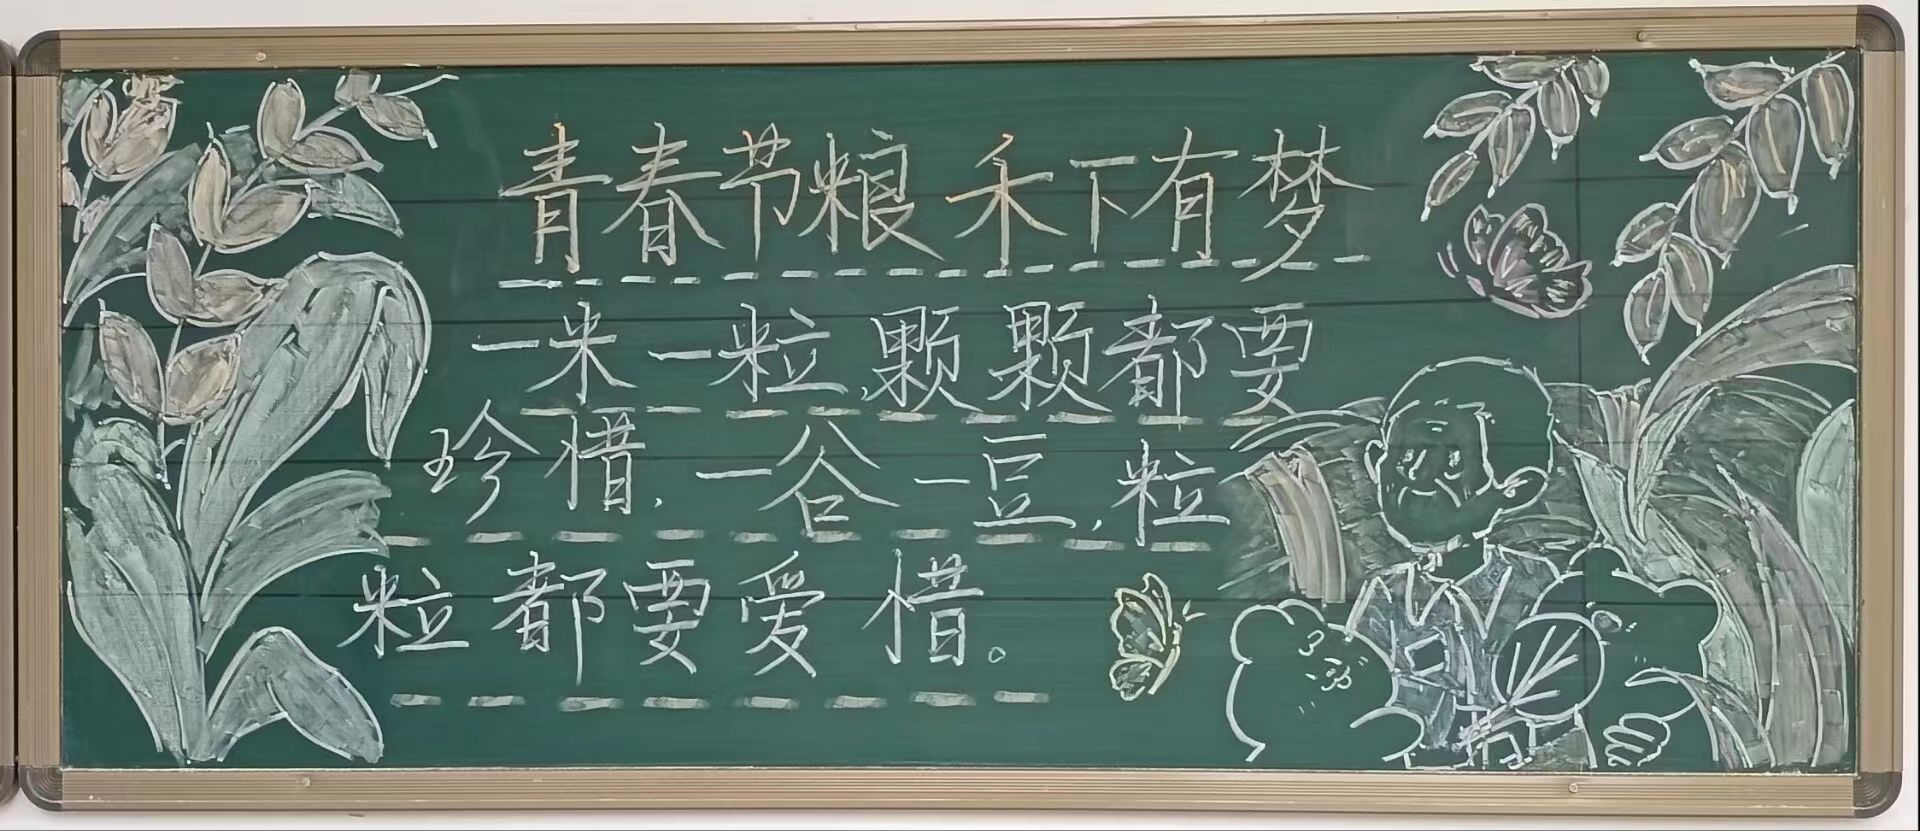 青春节粮 禾下有梦
一米一粒,颗颗都要
珍惜,一谷一豆,粒
粒都要爱惜。